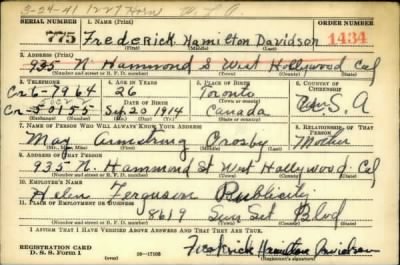 3-24-41 1227 Horn
SERIAL NUMBER 1. NAME (Print) ORDER NUMBER
775 Frederick Hamilton Davidson 1434
(First) (Middle) (Last)
2. ADDRESS (Print)
935 N Hammond S West Hollywood Cal
(Number and street or R. F. D. number) (Town) (County) (State)
3. TELEPHONE 4. AGE IN YEARS 5. PLACE OF BIRTH 6. COUNTRY OF CITIZENSHIP
Cr-6-7964 26 Toronto
DATE OF BIRTH (Town or county) U.S.A
Cr-5-0155 Sep 20 1914 Canada
(Mo.) (Day) (Yr.) (State or country)
7. NAME OF PERSON WHO WILL ALWAYS KNOW YOUR ADDRESS 8. RELATIONSHIP OF THAT PERSON
May Crosby Mother
(Mr., Mrs., Miss) (First) (Middle) (Last)
9. ADDRESS OF THAT PERSON
935 N. Hammond St West Hollywood. Cal
(Number and street or R. F. D. number) (Town) (County) (State)
10. EMPLOYER'S NAME
Helen Ferguson Publicity
11. PLACE OF EMPLOYMENT OR BUSINESS
8619 Sun Set Blvd
(Number and street or R. F. D. number) (Town) (County) (State)
I AFFIRM THAT I HAVE VERIFIED ABOVE ANSWERS AND THAT THEY ARE TRUE.
REGISTRATION CARD Frederick Hamilton Davidson
D. S. S. Form 1 16-17105 (Registrant's signature)